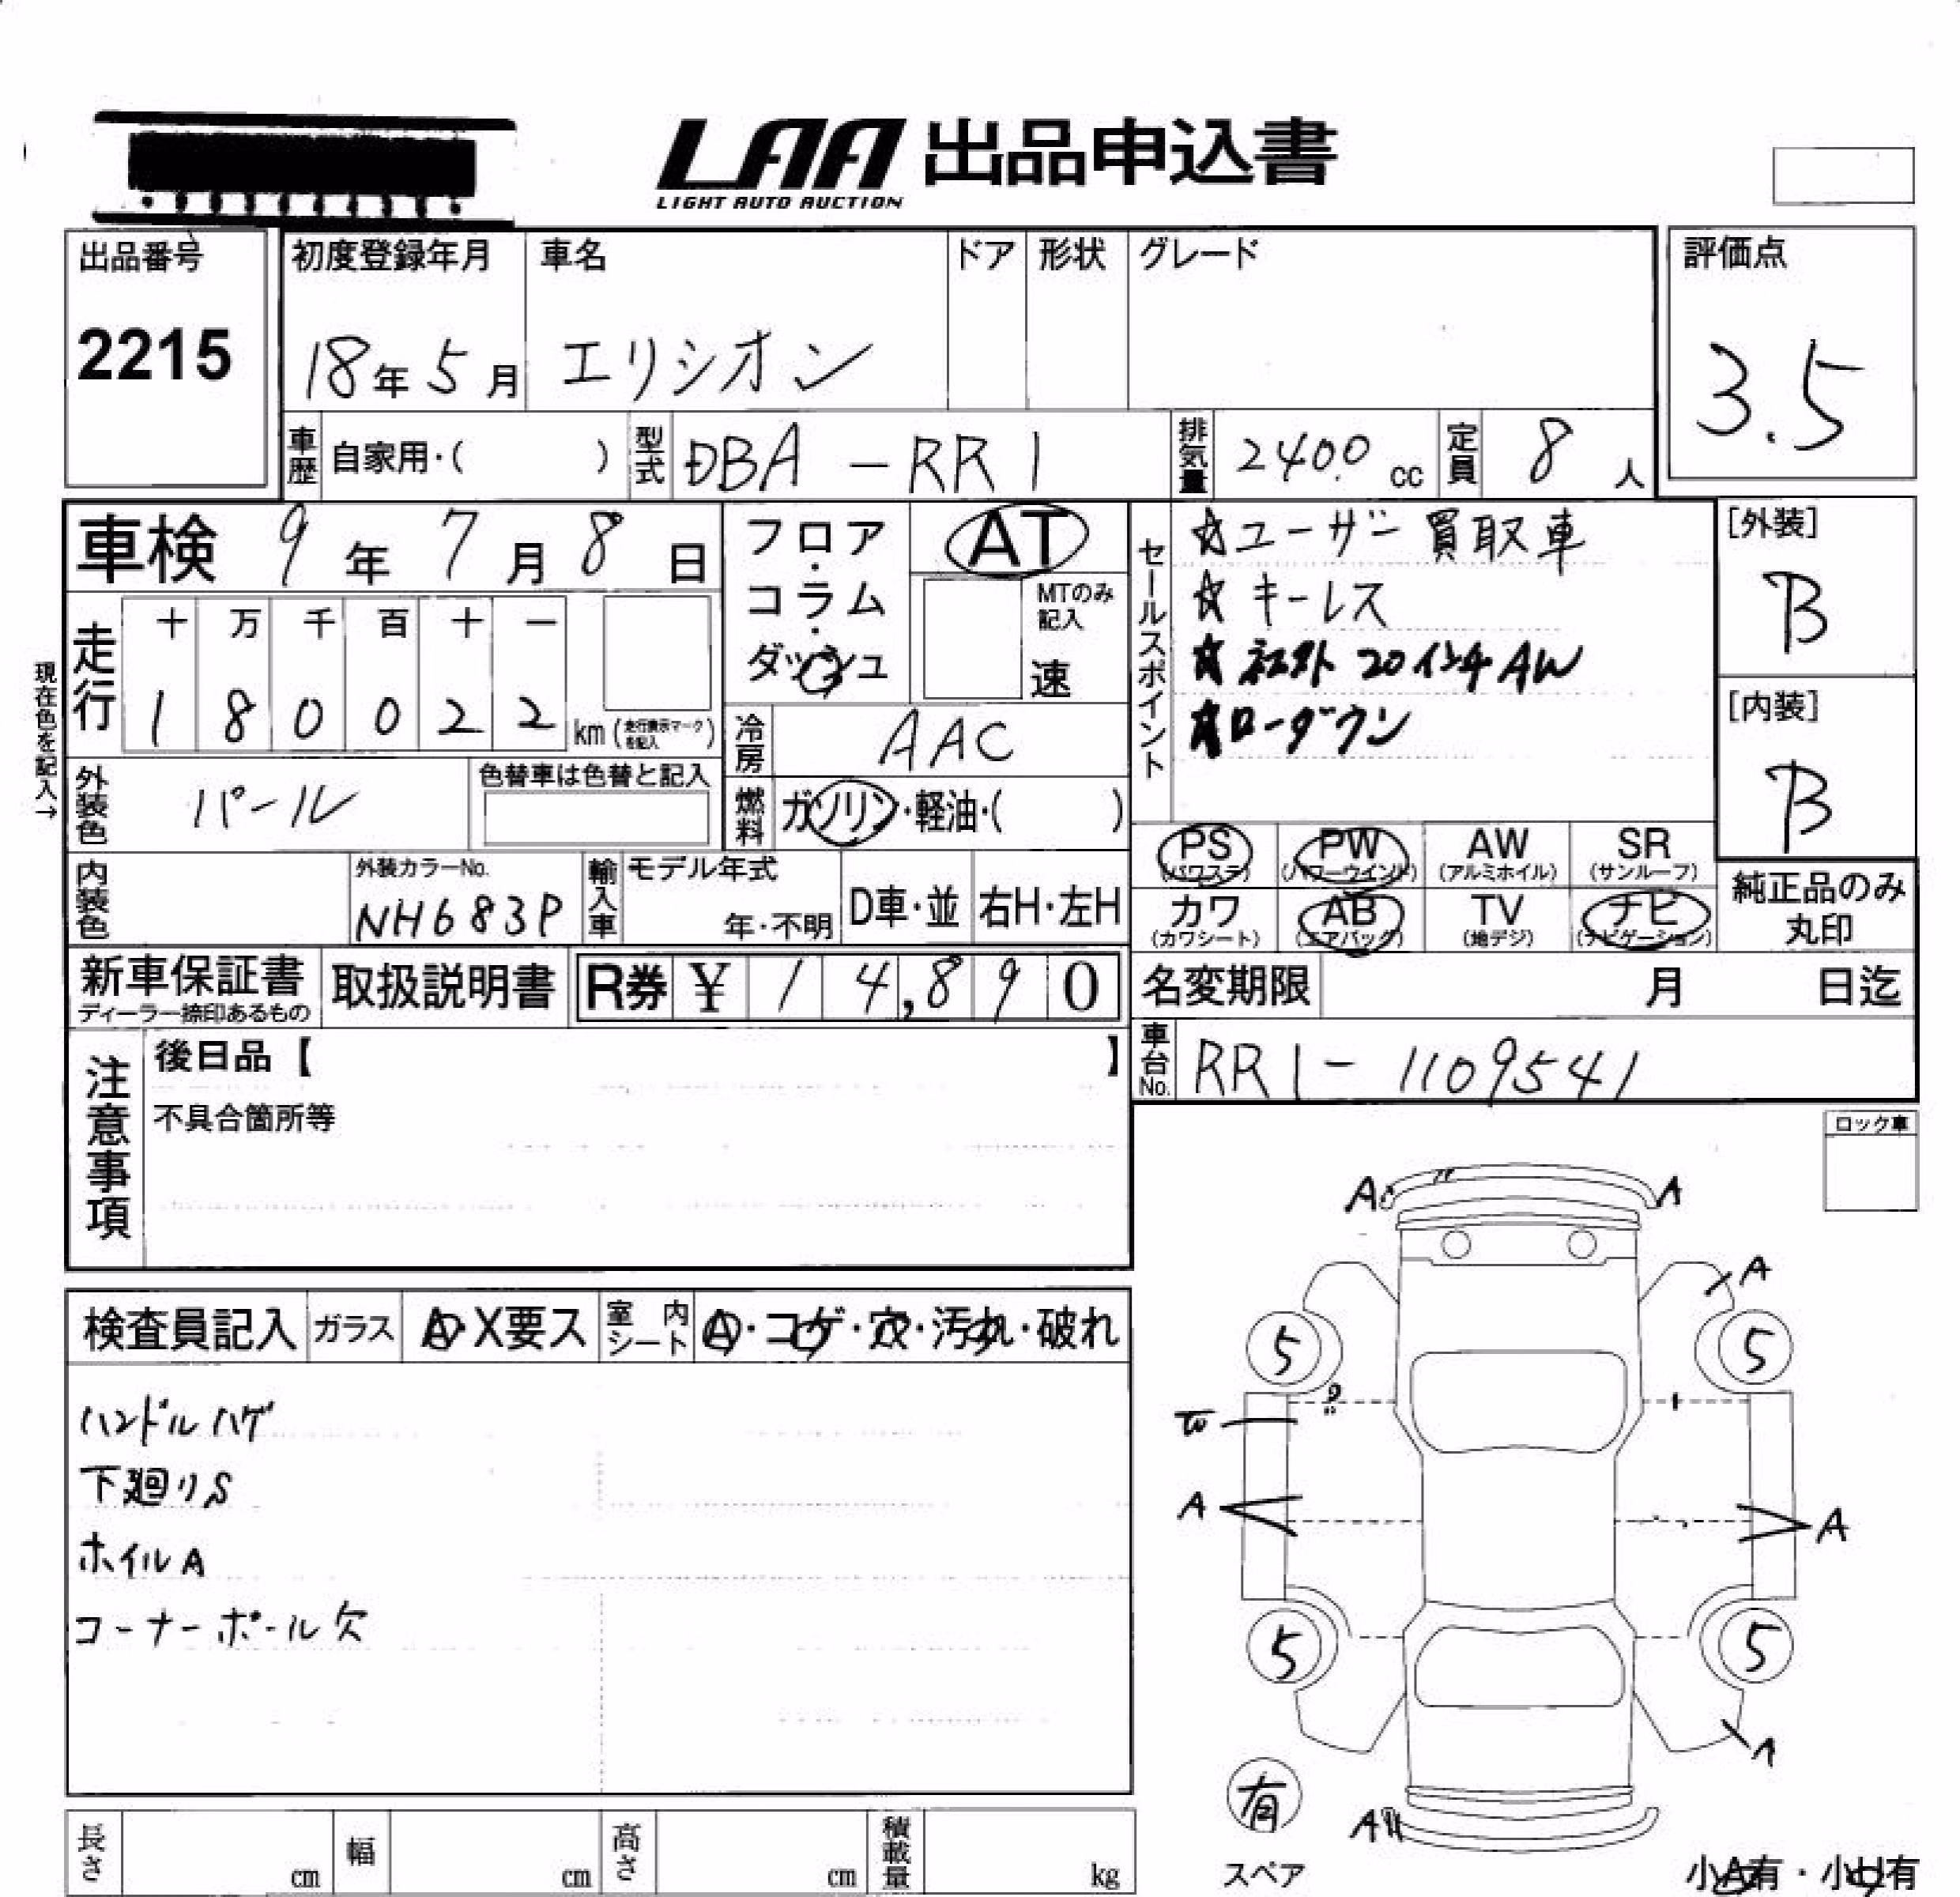 LAA 出品申込書
LIGHT AUTO AUCTION
出品番号
2215
初度登録年月
18年5月
車名
エリシオン
ドア
形状
グレード
評価点
3.5
車歴 自家用・( )
型式 DBA-RR1
排気量 2400 cc
定員 8人
車検 9年7月8日
フロア・コラム・ダッシュ
AT
MTのみ記入
速
セールスポイント
☆ユーザー買取車
☆キーレス
☆社外20インチAW
☆ローダウン
[外装]
B
[内装]
B
現在色を記入→
走行
十 万 千 百 十 一
1 8 0 0 2 2 km (走行表示マークを記入)
冷房 AAC
外装色 パール
色替車は色替と記入
燃料 ガソリン・軽油・( )
PS (パワステ)
PW (パワーウインド)
AW (アルミホイル)
SR (サンルーフ)
カワ (カワシート)
AB (エアバッグ)
TV (地デジ)
ナビ (ナビゲーション)
純正品のみ丸印
内装色
外装カラーNo.
NH683P
輸入車
モデル年式
年・不明
D車・並
右H・左H
新車保証書
ディーラー捺印あるもの
取扱説明書
R券 ¥ 14,890
名変期限 月 日迄
車台No. RR1-1109541
注意事項
後日品【 】
不具合箇所等
ロック車
検査員記入
ガラス
A・X要ス
室内シート
A・コゲ・穴・汚れ・破れ
ハンドルハゲ
下廻りS
ホイルA
コーナーポール欠
A A
A
5 5
W
A A
5 5
A
有
スペア
小A有・小U有
長さ cm
幅 cm
高さ cm
積載量 kg